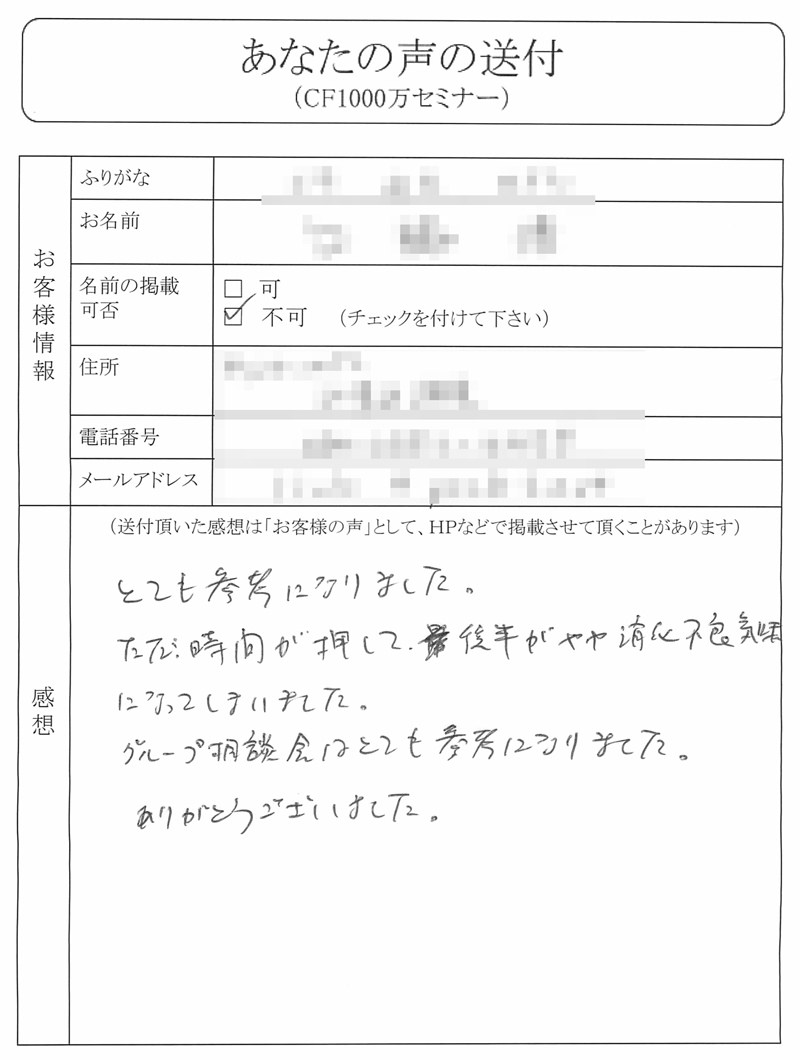 あなたの声の送付
(CF1000万セミナー)
お客様情報
ふりがな
お名前
名前の掲載
可否
□ 可
☑ 不可 (チェックを付けて下さい)
住所
電話番号
メールアドレス
感想
(送付頂いた感想は「お客様の声」として、HPなどで掲載させて頂くことがあります)
とても参考になりました。
ただ、時間が押して、最後半がやや消化不良気味
になってしまいました。
グループ相談会はとても参考になりました。
ありがとうございました。